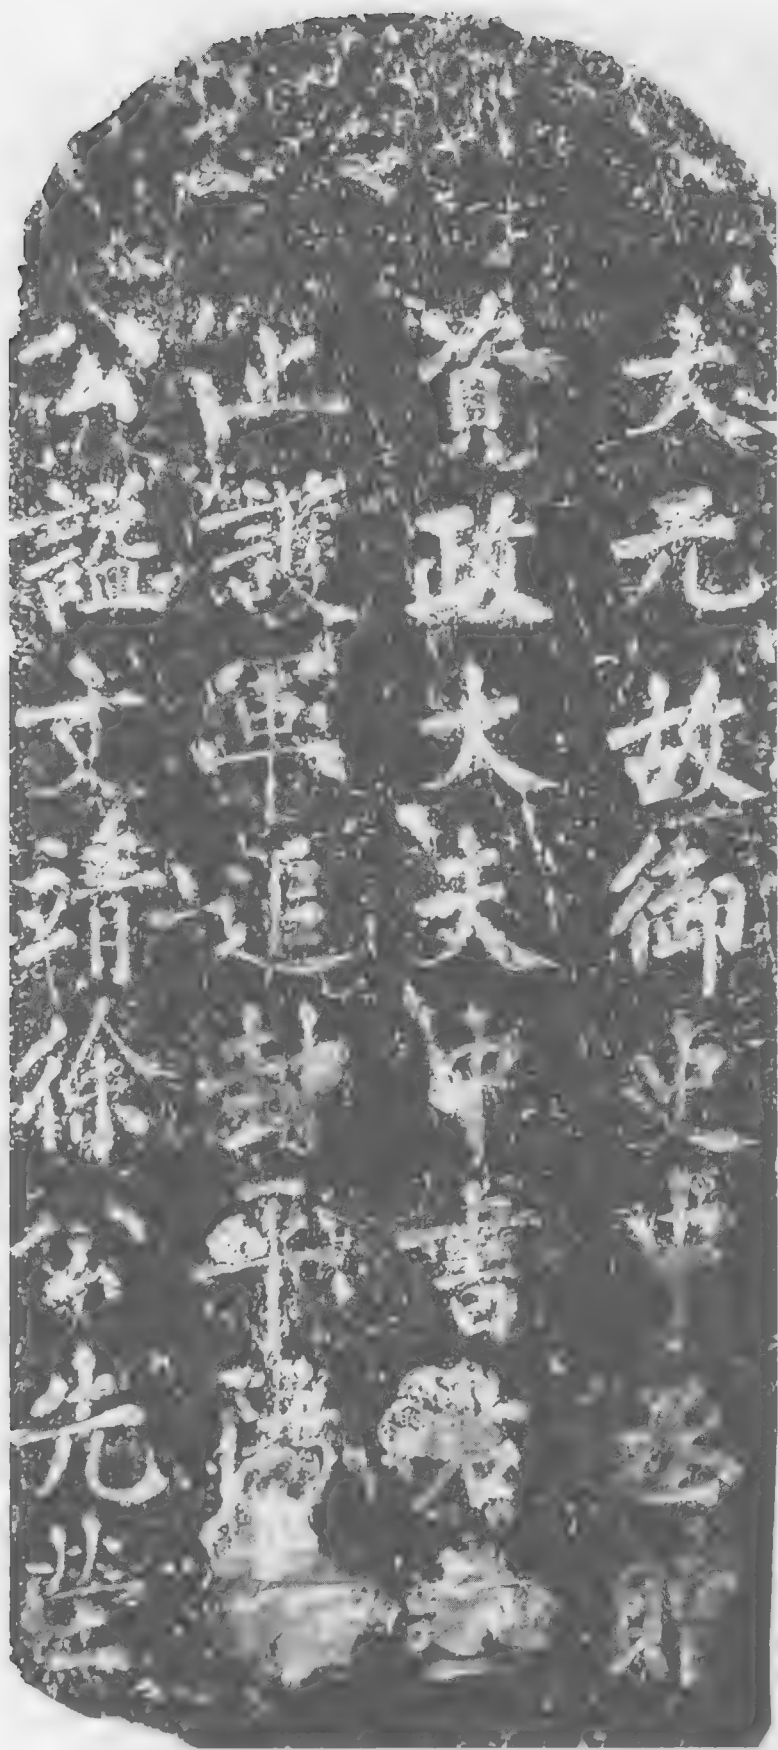 大元故御史中丞贈
資政大夫中書右
上護軍追封平陽
公謚文靖徐公先塋